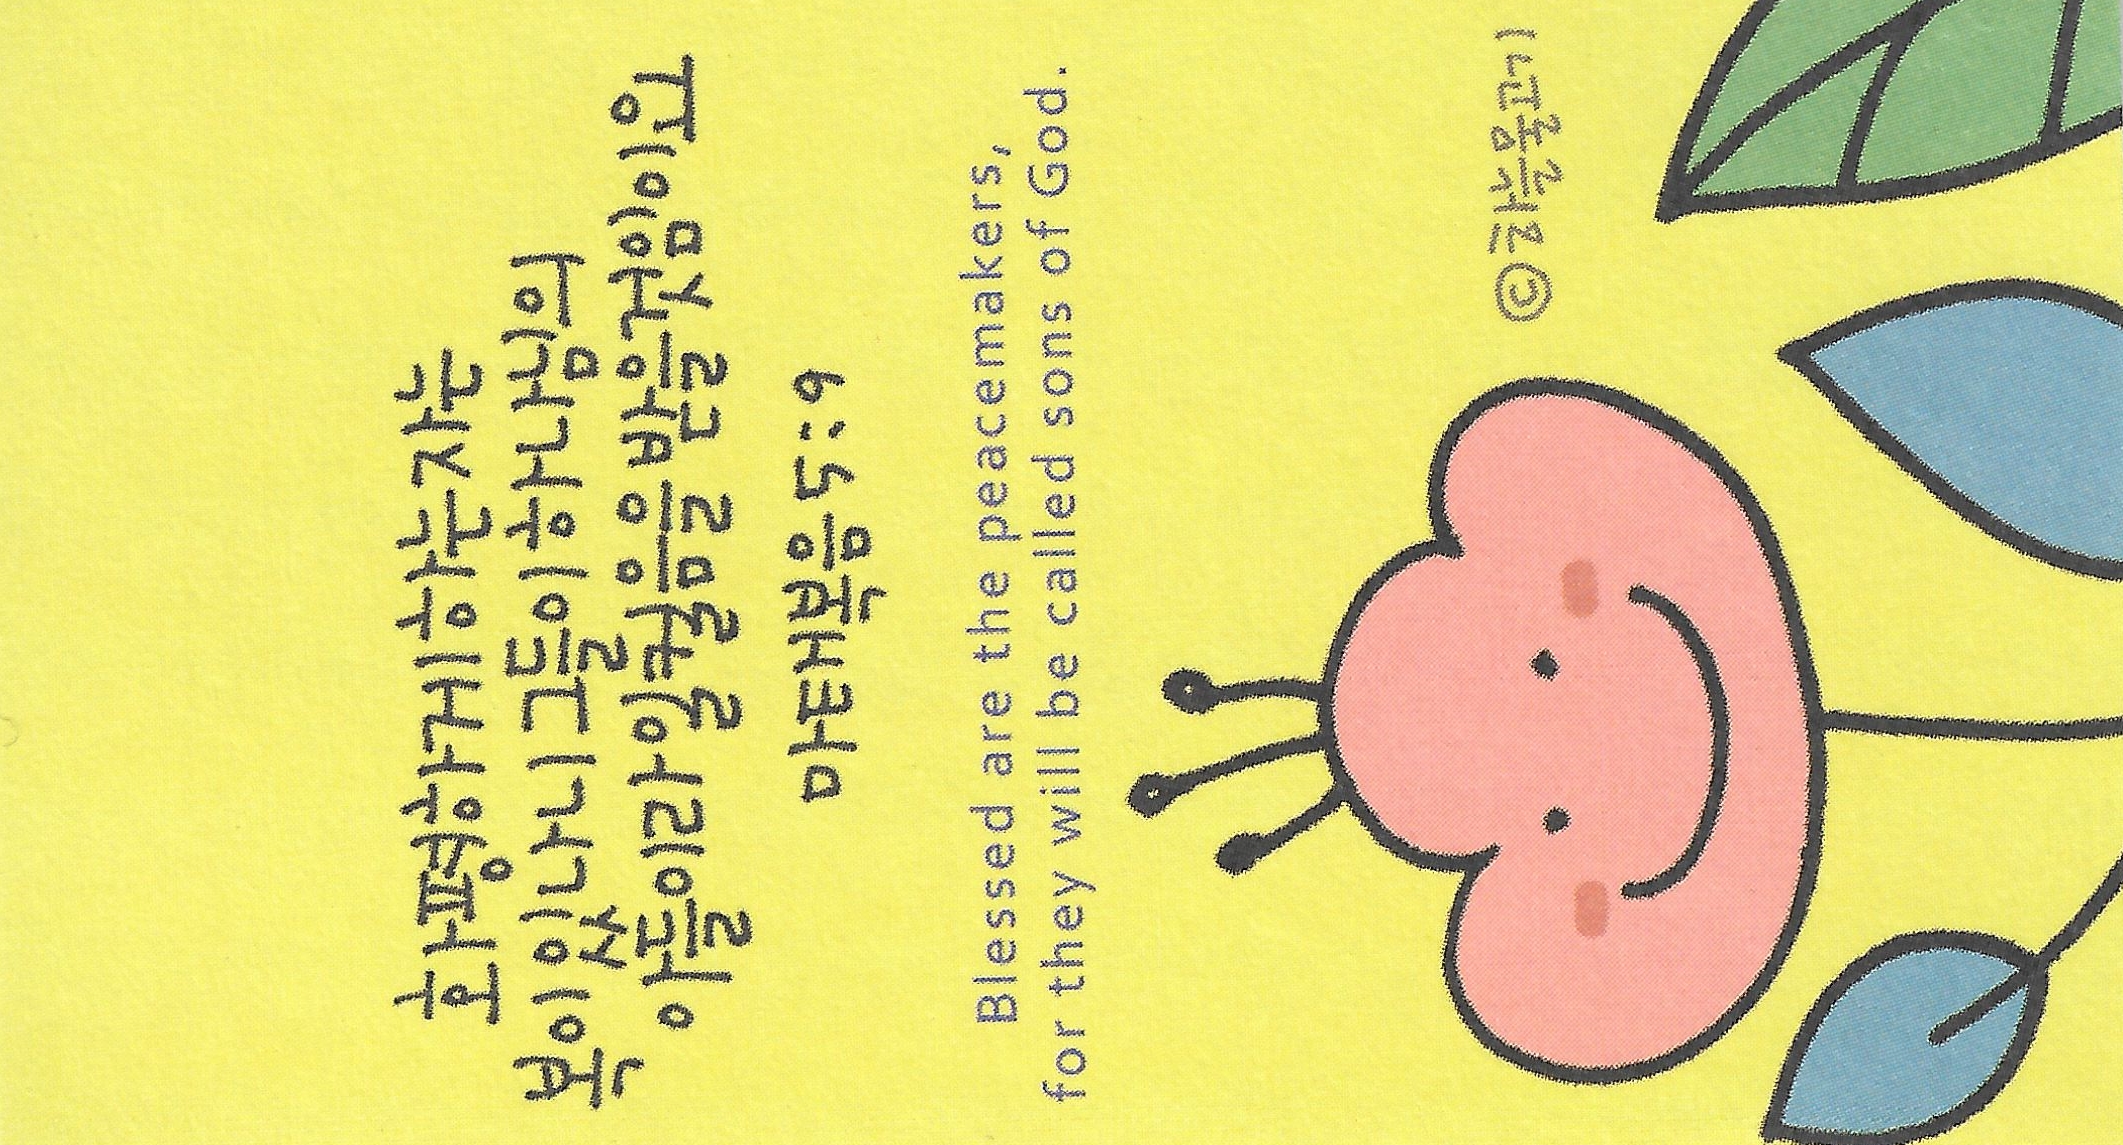 화평하게 하는 자는
복이 있나니 그들이 하나님의
아들이라 일컬음을 받을 것임이요
마태복음 5:9
Blessed are the peacemakers,
for they will be called sons of God.
ⓒ하늘물고기